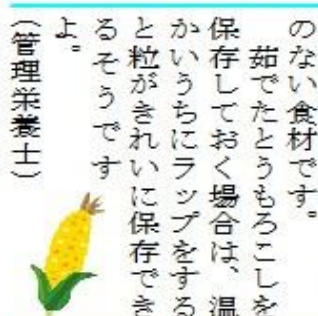 のない食材です。
　茹でたとうもろこしを
保存しておく場合は、温
かいうちにラップをする
と粒がきれいに保存でき
るそうです
よ。
（管理栄養士）